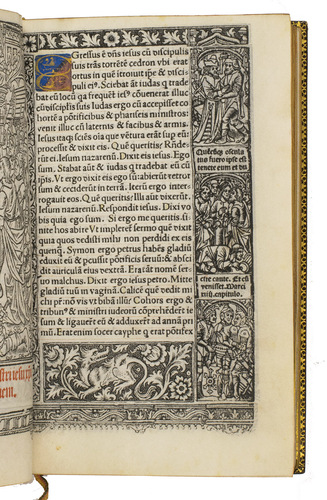 EGressus ē dn̄s iesus cū discipulis
suis trās torrētē cedron vbi erat
ortus in quē itroiuit ip̄e & disci-
puli ei⁹. Sciebat āūt iudas q trade
bat eū locū qa frequēt̄ ies⁹ cōuenerat illuc
cū discipl̄is suis Iudas ergo cū accepisset co
hortē a pōtificibus & phariseis ministros
venit illuc cū laternis & facibus & armis.
Iesus itaq; sciēs oīa que vētura erāt sup eū:
processit & dixit eis. Quē queritis? Rn̄de-
rūt ei. Iesum nazarenū. Dixit eis iesus. Ego
sum. Stabat āūt & iudas q tradebat eū cū
ip̄is. Vt ergo dixit eis ego sū: abierūt retror
sum & ceciderūt in terrā. Iterū ergo inter-
rogauit eos. Quē queritis? Illi āūt dixerūt.
Iesum nazarenū. Respondit iesus. Dixi vo
bis quia ego sum. Si ergo me queritis si-
nite hos abire Vt impleret̄ sermo quē dixit
quia quos vedisti mihi non perdidi ex eis
quenq̄. Symon ergo petrus habēs gladiū
eduxit eū & pcussit pōtificis seruū: & absci
dit auriculā eius vextrā. Erat āt nomē ser-
uo malchus. Dixit ergo iesus petro. Mitte
gladiū tuū in vaginā. Calicē quē vedit mi
chi pr̄: nō vis vt bibā illū? Cohors ergo &
tribun⁹ & ministri iudeorū cōprehēderūt ie
sum & ligauerūt eū & adduxerūt ad annā pri
mū. Erat enim socer cayphe q erat pōtifex
Quēcūq; oscula
tus fuero ipse est
tenete eum et du
cite caute. Et cū
venisset. Marci
xiiij. capitulo.